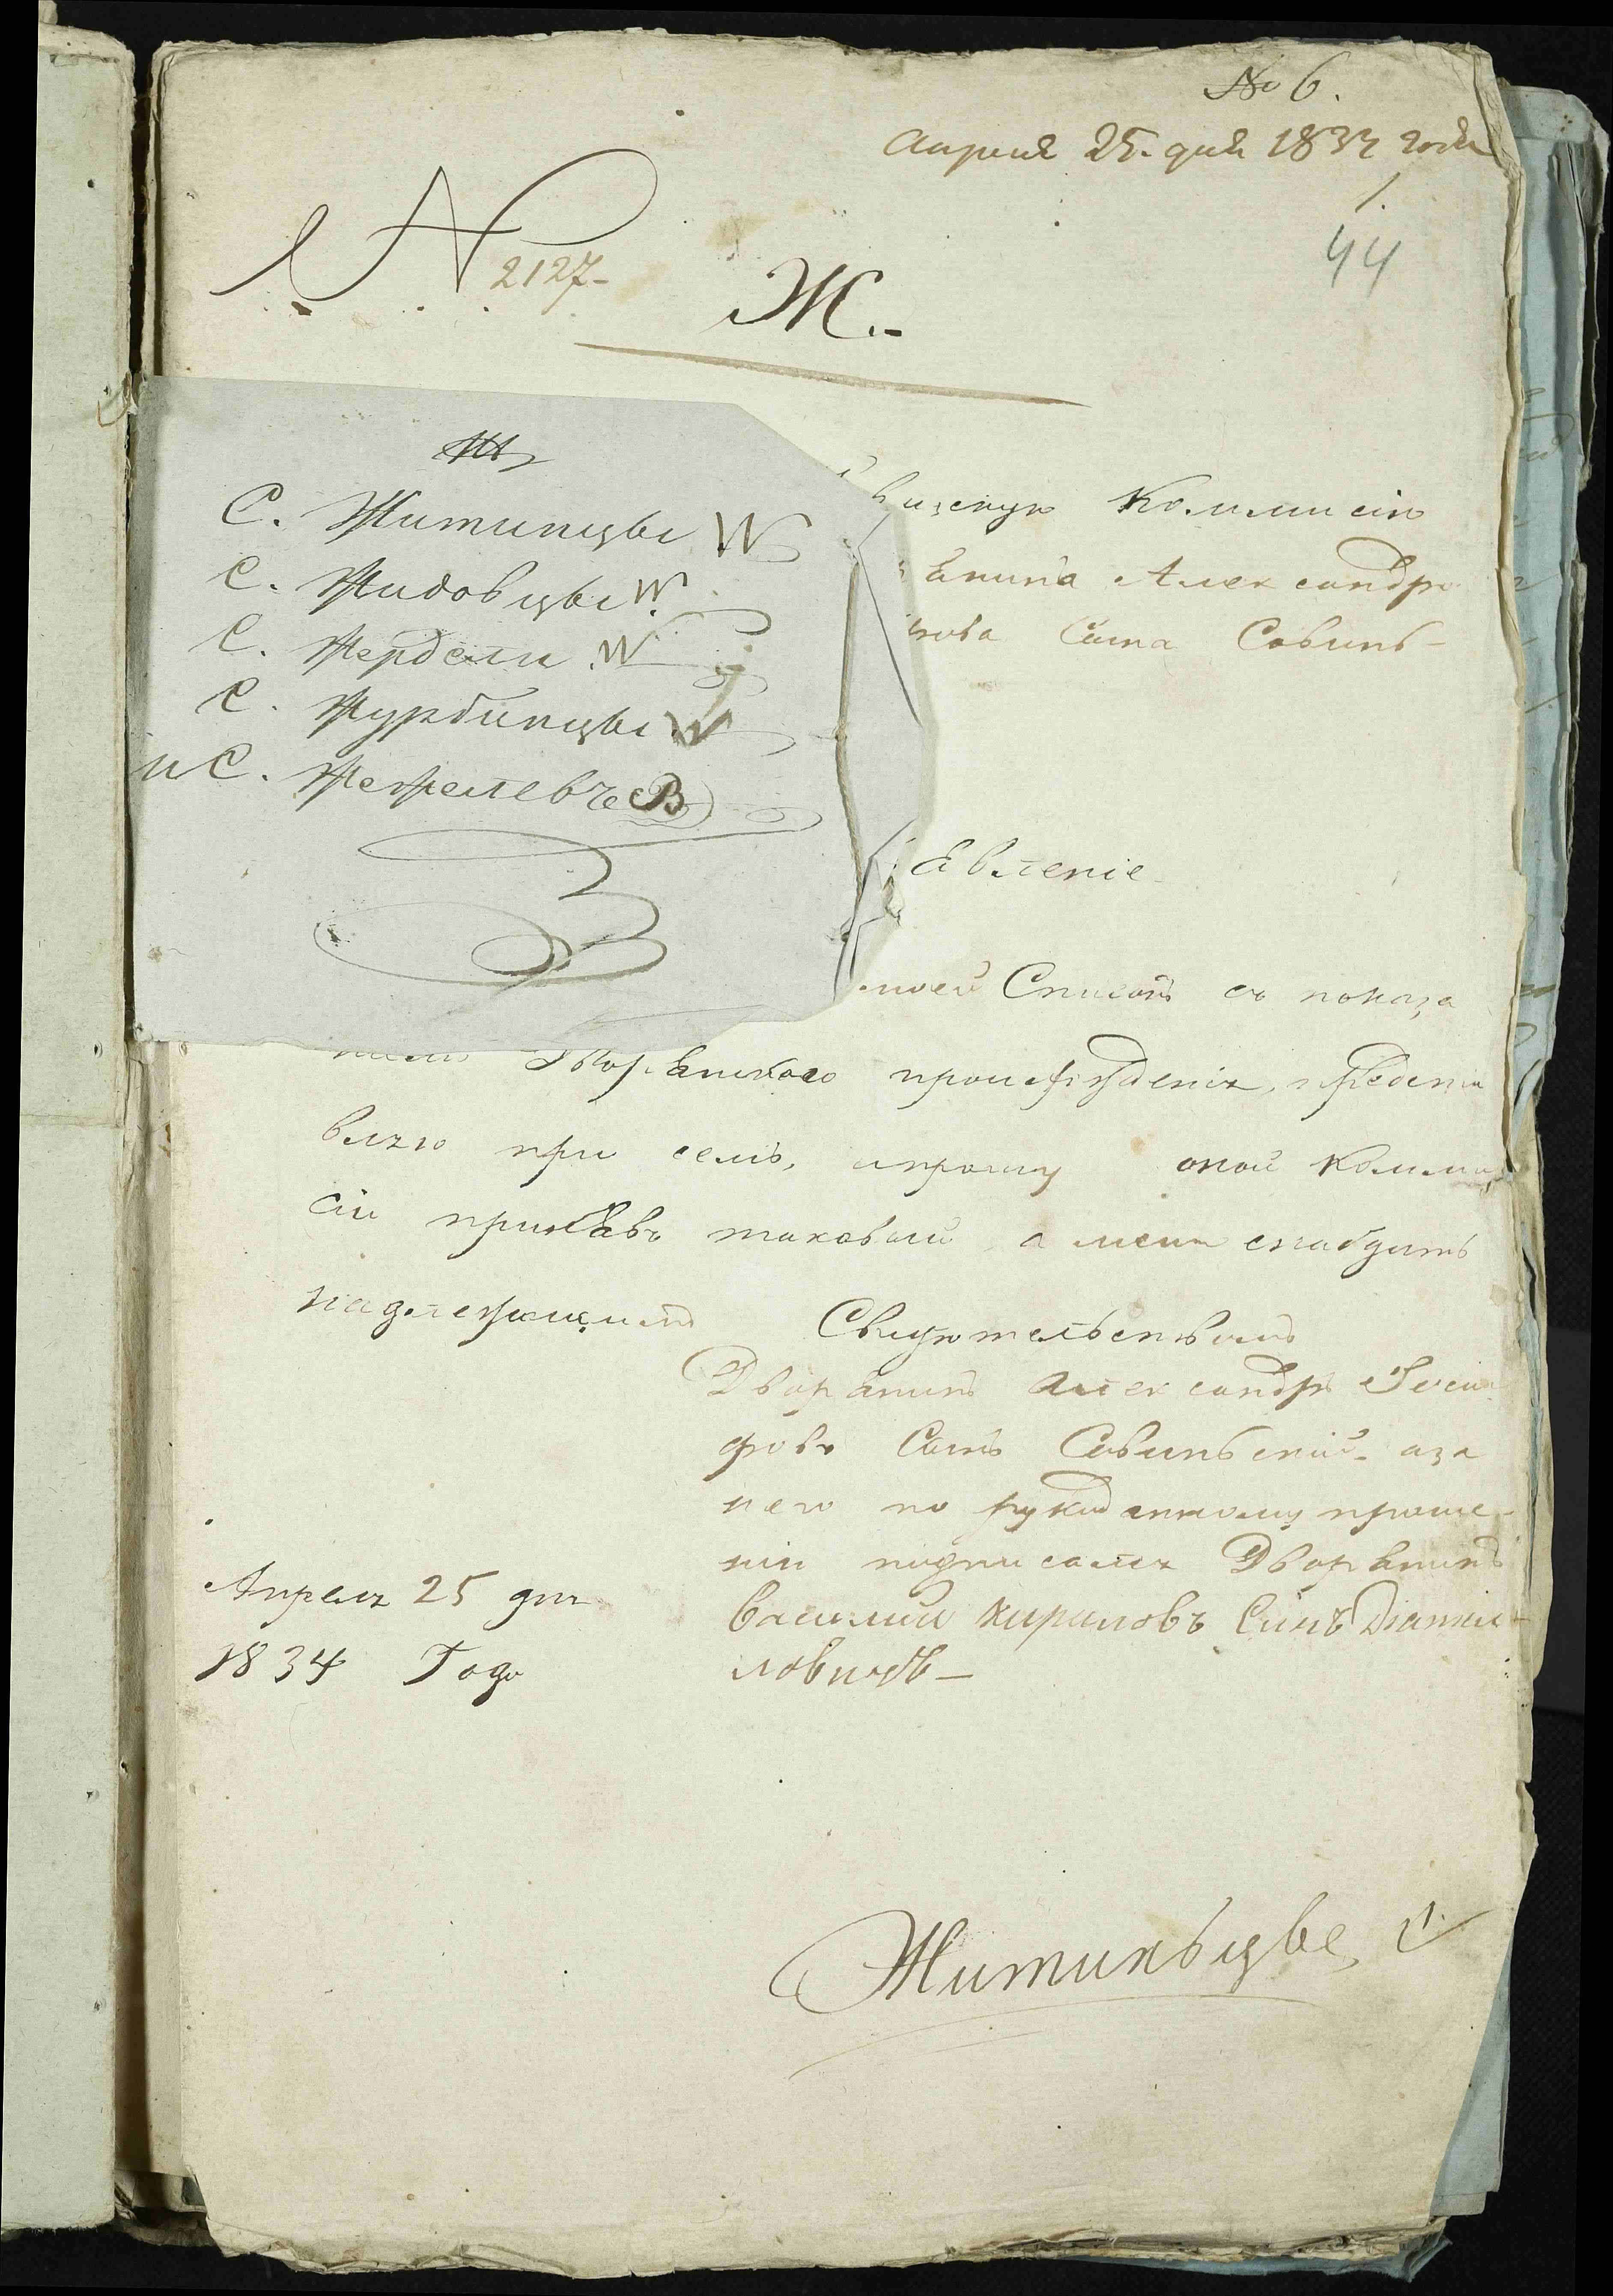 № 6.
Апреля 25. дня 1834 года
1.
44
№ 2127-
Ж.-
С. Житинцы
С. Жидовцы
С. Жердели
С. Журбинцы
и С. Жежелевче
Коммисію
Александра
Сына Совинь-
Явленіе
моей Списокъ съ показа
ніемъ Дворянского происхожденія, предста
вляю при семъ, и прошу оной Коммис
сіи принявъ таковый а меня снабдить
надлежащимъ Свидѣтельствомъ
Дворянинъ Александръ Іоси
фовъ Сынъ Совинскій- а за
него по рукоданному проше-
нію подписался Дворянинъ
Василий Кириловъ Сынъ
ловичъ-
Апреля 25 дня
1834 Года
Житиньцѣ